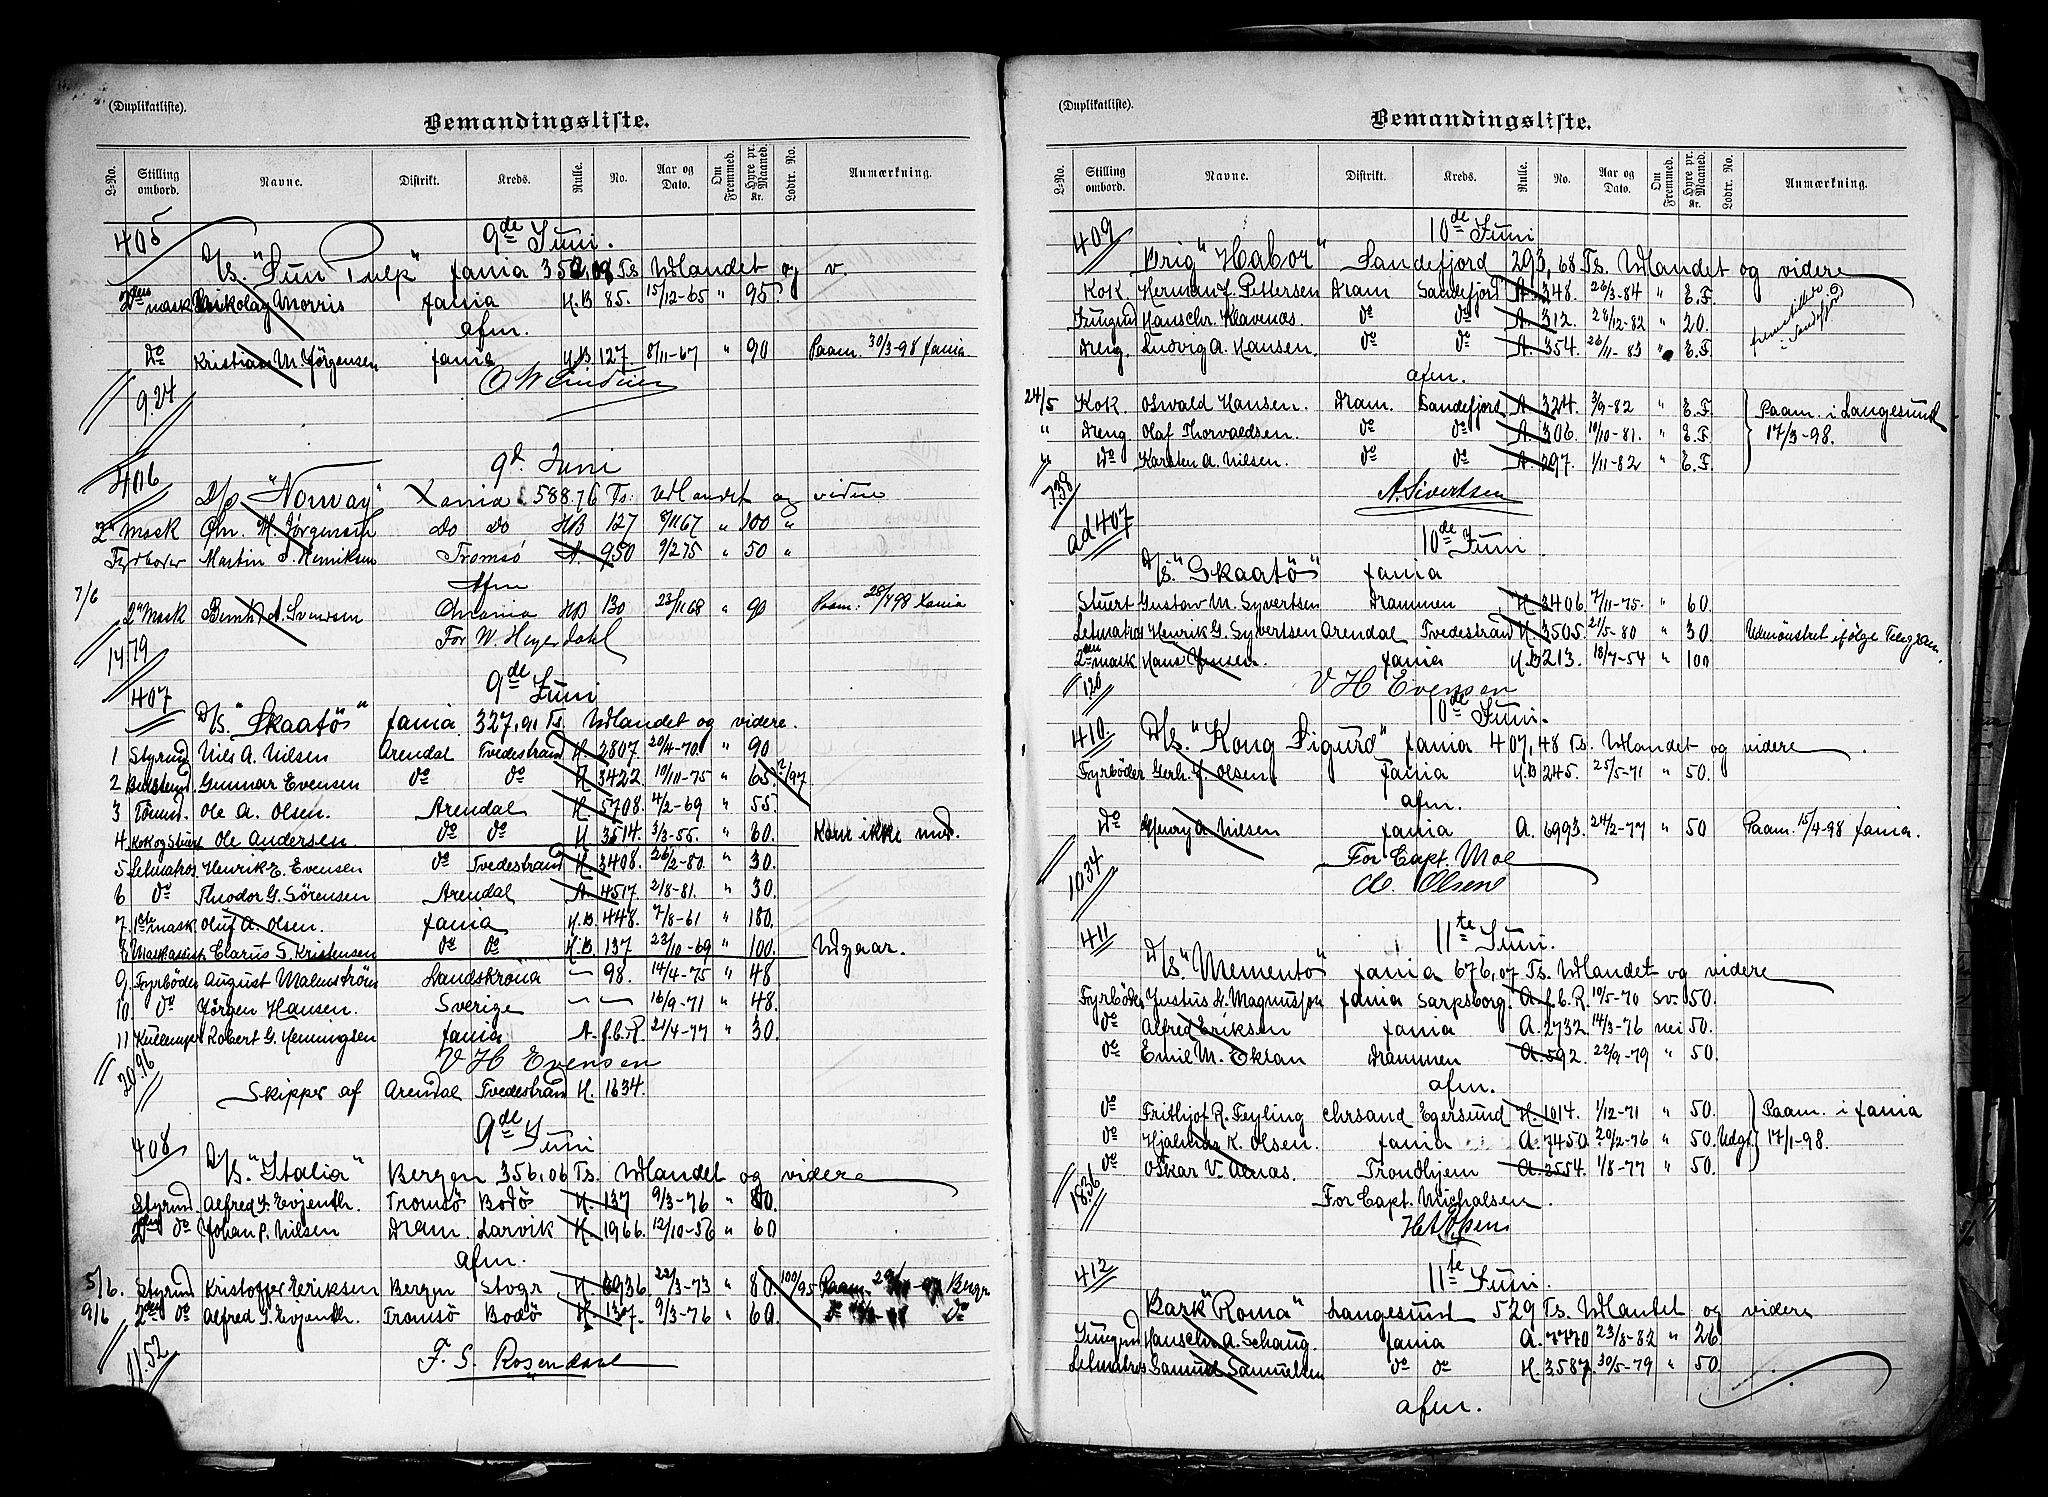 (Duplikatliste).
Bemandingsliste.
L-No. Stilling ombord. Navne. Distrikt. Kreds. Rulle. No. Aar og Dato. Om Fremmed. Hyre pr. Maaned. Kr. Lodtr. No. Anmærkning.
405 9de Juni.
D/S. "Sun Fania 352,08 Ts. Udlandet og v.
2den mask Nikolay Morris Fania H.B 85. 15/12-65 " 95.
afm.
do Kristian M. Jörgensen Fania H.B 127. 8/11-67 " 90 Paam. 30/3-98 Fania
9.24
406 9d. Juni
D/S "Norway" Xania 588.76 Ts: Udlandet og videre
2n Mask Chr. M. Jørgensen do do HB 127 8/11 67 " 100 "
Fyrbøder Martin J. Henriksen Tromsø A. 950 9/2 75 " 50 "
Afm
7/6 2n Mask Bernh. A. Svensen Chrania HB 130 23/11 68 " 90 Paam. 28/4 98 Xania
14.79 For W. Heyerdahl
407 9de Juni
D/S. "Skaatös" Fania 327,91 Ts. Udlandet og videre.
1 Styrmd Nils A. Nilsen Arendal Tvedestrand H. 2807. 20/4-70. " 90
2 Bestmd. Gunnar Evensen do do H 3422 19/10-75 " 65. 2/97
3 Tömmd. Ole A. Olsen. Arendal H. 5708. 4/2-69 " 55.
4 Kok og Stuert Ole Andersen do do H 3514. 3/3-55. " 60. Kom ikke med.
5 Letmatros Henrik E. Evensen do Tvedestrand H. 3408. 26/2-80. " 30.
6 do Theodor G. Sörensen Arendal A. 4517 21/8-81. " 30.
7. 1ste mask Oluf A. Olsen. Fania H.B. 448. 7/8-61 " 180.
8 Maskassist. Clarus S. Kristensen do do H.B. 137 23/10-69 " 100. Udgaar.
9. Fyrböder August Malmström Landskrona — 98. 14/4-75 " 48
10. do Jörgen Hansen. Sverige — — 16/9-71 " 48.
11 Kullemper Robert G. Henningsen Fania A. f.C.R. 21/4-77 " 30.
20.96 V H Evensen
Skipper af Arendal Tvedestrand H. 1634.
408 9de Juni
D/S. "Italia" Bergen 356,06 Ts. Udlandet og videre
Styrmd Alfred J. Evjenth. Tromsö Bodö H. 137 9/3-76 " 80.
2den do Johan P. Nilsen Dram. Larvik H. 1966. 12/10-56 " 60
afm.
5/6. Styrmd Kristoffer Eriksen Bergen Stvgr H. 6936 22/3-73 " 80 100/95 Paam. Bergn
9/6 2den do Alfred J. Evjenth. Tromsö Bodö H. 137. 9/3-76 " 60 do
11.52 F. S. Rosendahl
(Duplikatliste).
Bemandingsliste.
L-No. Stilling ombord. Navne. Distrikt. Kreds. Rulle. No. Aar og Dato. Om Fremmed. Hyre pr. Maaned. Kr. Lodtr. No. Anmærkning.
409 10de Juni
Brig "Habor" Sandefjord 293,68 Ts. Udlandet og videre
Kok Herman L. Pettersen Dram Sandefjord A. 348. 26/3-84 " E.F. fremstillet i Sandefjord
Jungmd Hanschr. Klavenæs. do do A. 312. 28/12-82 " 20.
Dreng. Ludvig A. Hansen. do do A. 354. 26/11-83 " E.F
afm.
24/5 Kok. Oswald Hansen. Dram. Sandefjord A. 324. 3/9-82 " E.F. Paam. i Langesund
" Dreng. Olaf Thorvaldsen. do do A. 306. 19/10-81. " E.F 17/3-98.
" do Karsten A. Nilsen. do do A. 297. 1/11-82 " E.F
7.38 A. Sivertsen
ad 407 10de Juni
D/S. "Skaatö" Fania
Stuert Gustav M. Syvertsen Drammen H. 3406. 7/11-75. " 60.
Letmatros Henrik G. Syvertsen Arendal Tvedestrand H. 3505. 21/5-80 " 30. Udmönstret ifölge Telegram.
2den mask Hans Jensen. Fania H.B 213. 18/7-54 " 100
1.20 V H Evensen
410 10de Juni.
D/S. "Kong Sigurd" Fania 407,48 Ts. Udlandet og videre.
Fyrböder Gerh. J. Olsen Fania H.B 245. 25/5-71 " 50.
afm.
do Henry A. Nilsen Fania A. 6993. 24/2-77 " 50 Paam. 15/4-98 Fania.
10.34 For Capt. Moe
Olsen
411 11te Juni.
D/S. "Memento" Fania 676,07 Ts. Udlandet og videre
Fyrböder Justus N. Magnusson Fania Sarpsborg. A. f.C.R. 10/5-70 Sv. 50.
do Alfred Eriksen Fania A. 2732. 14/3-76 nei 50.
do Emil M. Eklan Drammen A. 592. 22/9-79 " 50.
afm.
do Frithjof R. Feyling Chrsand Egersund H. 1014. 1/12-71 " 50. Paam. i Fania
do Hjalmar K. Olsen. Fania A. 7450. 29/2-76 " 50. Udgt 17/1-98.
do Oskar V. Aenas. Trondhjem A. 2554. 1/8-77 " 50.
18.36 For Capt. Michalsen.
412 11te Juni.
Bark "Roma" Langesund 529 Ts. Udlandet og videre
Jungmd Hanschr. A. Schaug. Fania A. 7770 23/8-82 " 26.
Letmatros Samuel Samuelsen do do H. 3587. 30/5-79 " 50.
afm.